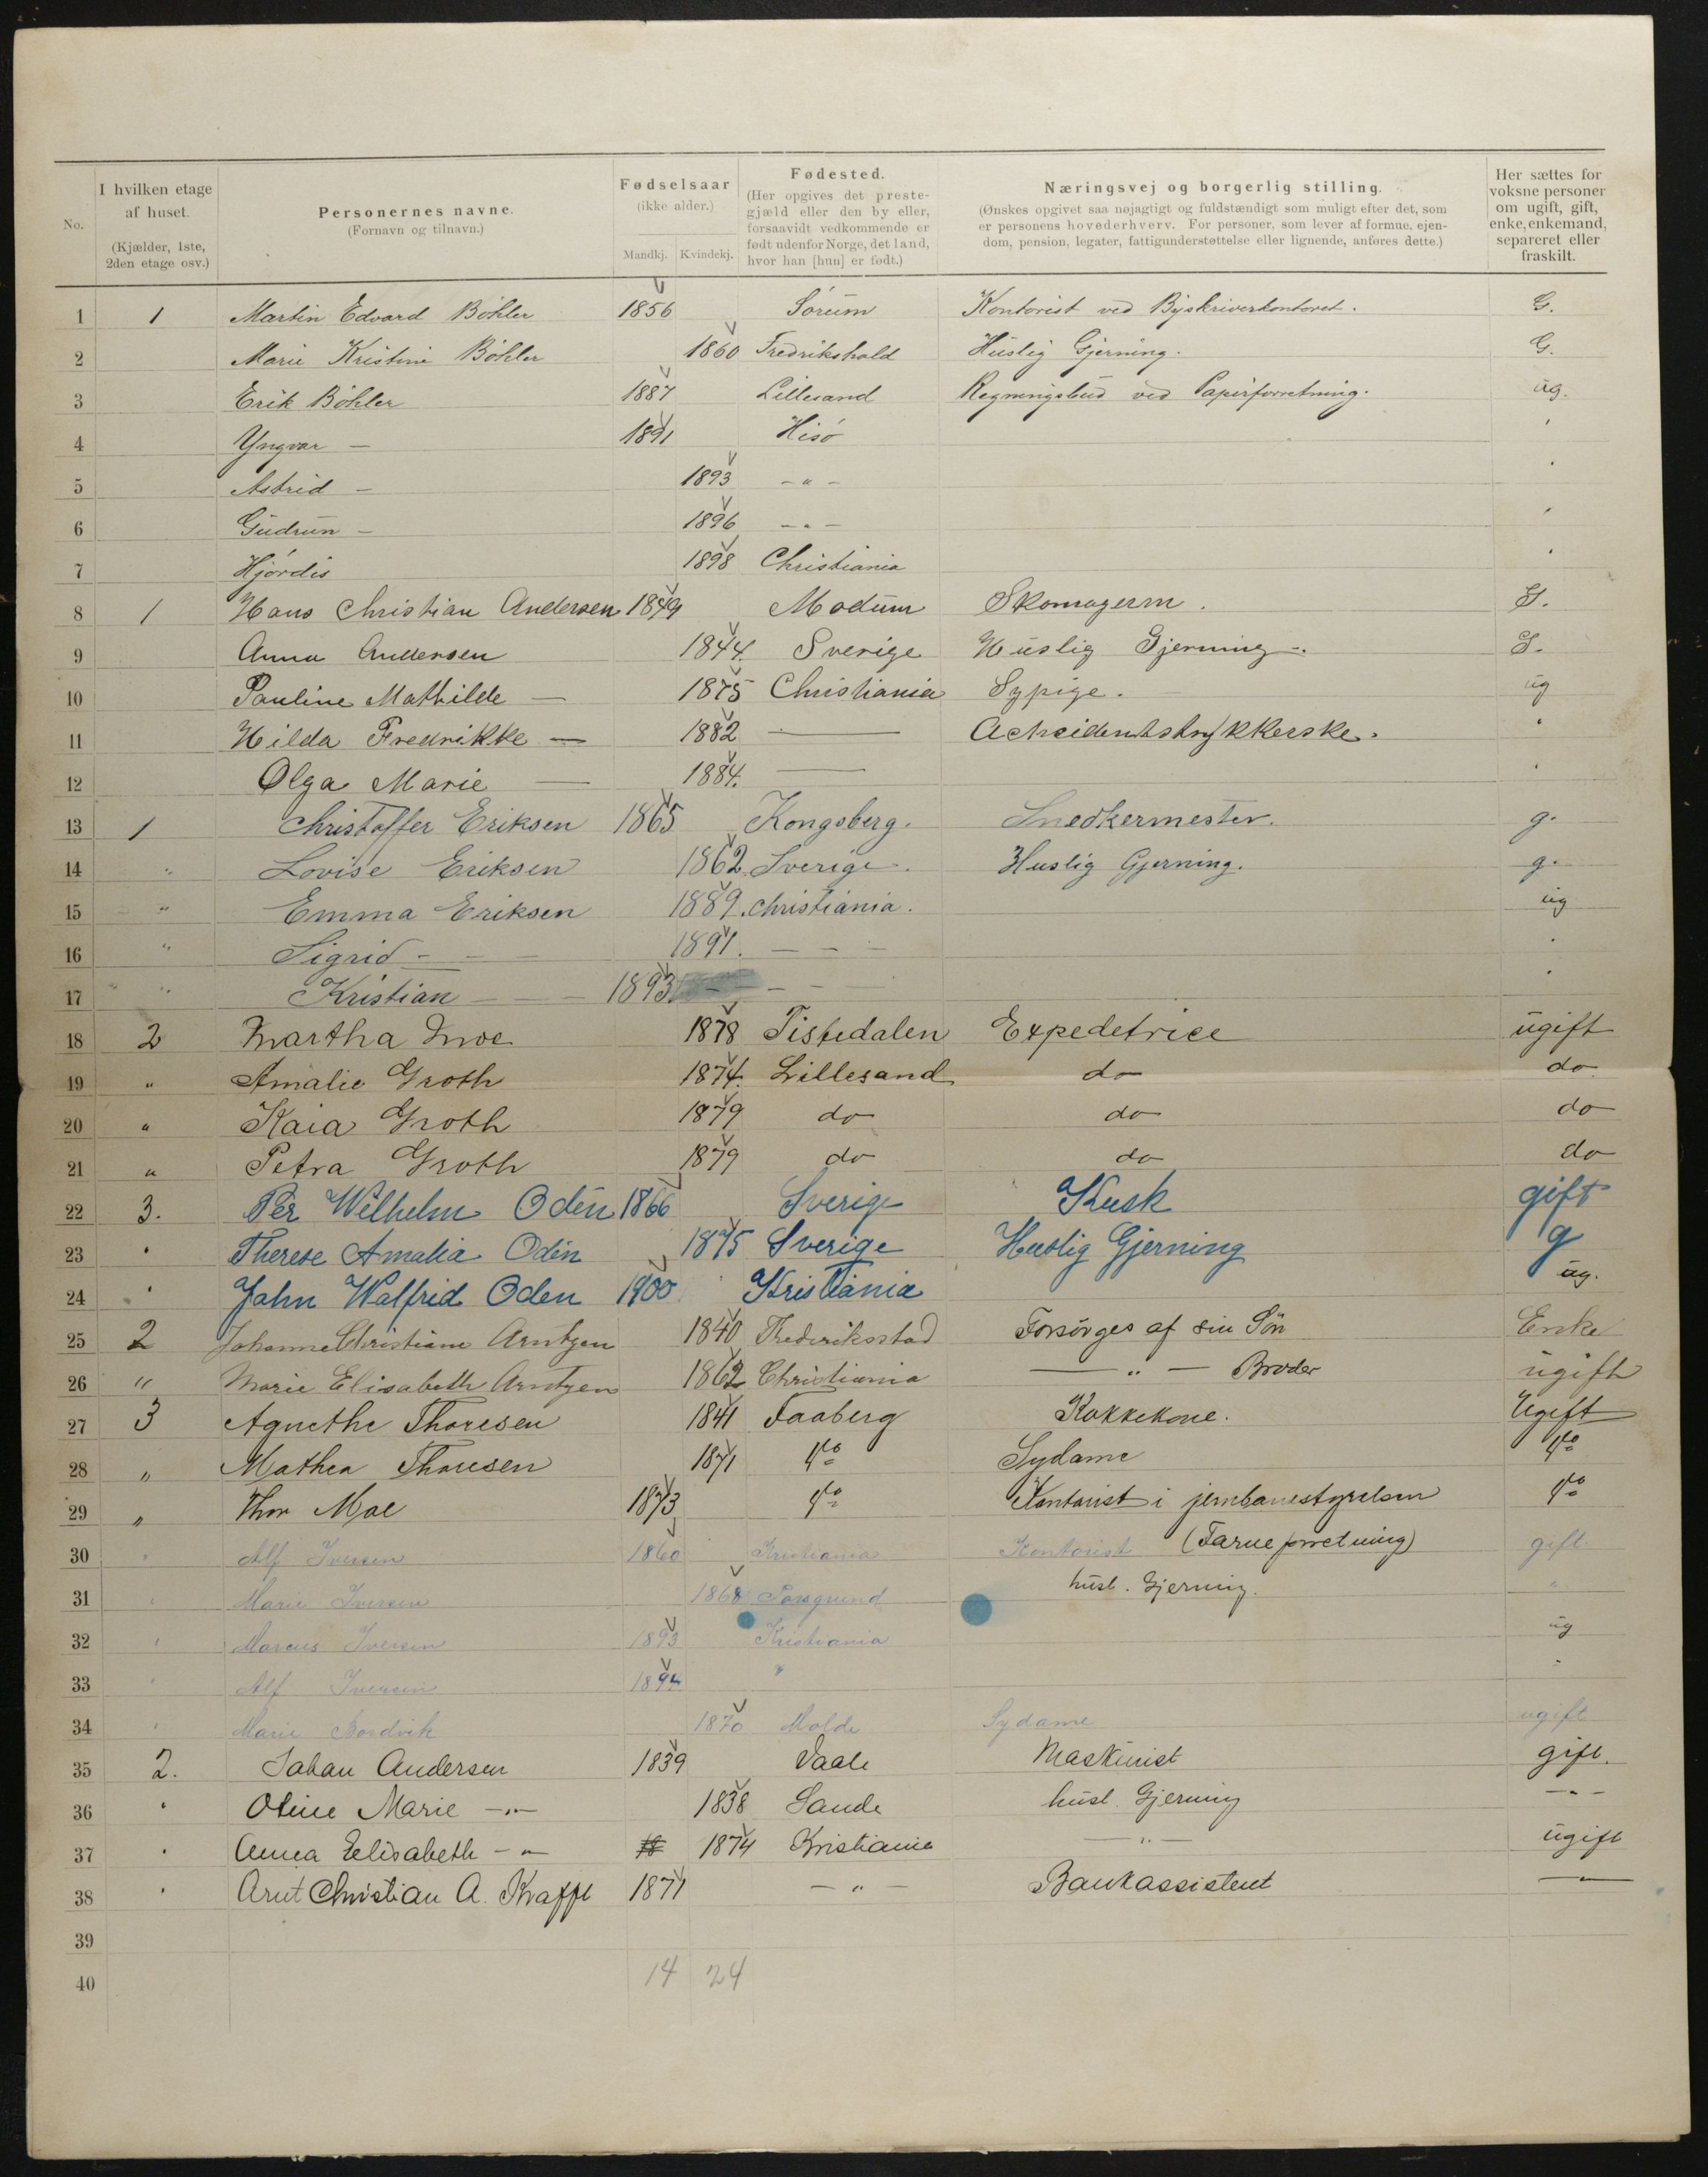 No.
I hvilken etage af huset.
(Kjælder, 1ste, 2den etage osv.)
Personernes navne.
(Fornavn og tilnavn.)
Fødselsaar
(ikke alder.)
Mandkj. Kvindekj.
Fødested.
(Her opgives det prestegjæld eller den by eller, forsaavidt vedkommende er født udenfor Norge, det land, hvor han [hun] er født.)
Næringsvej og borgerlig stilling.
(Ønskes opgivet saa nøjagtigt og fuldstændigt som muligt efter det, som er personens hovederhverv. For personer, som lever af formue, ejendom, pension, legater, fattigunderstøttelse eller lignende, anføres dette.)
Her sættes for voksne personer om ugift, gift, enke, enkemand, separeret eller fraskilt.
1 1 Martin Edvard Böhler 1856 Sörum Kontorist ved Byskriverkontoret. G.
2 Marie Kristine Böhler 1860 Fredrikshald Huslig Gjerning. G.
3 Erik Böhler 1887 Lillesand Regningsbud ved Papirforretning. ug.
4 Yngvar — 1891 Hisö "
5 Astrid — 1893 - " - "
6 Gudrun — 1896 - " - "
7 Hjördis 1898 Christiania "
8 1 Hans Christian Andersen 1849 Modum Skomagerm. G.
9 Anna Andersen 1844. Sverige Huslig Gjerning. G.
10 Pauline Mathilde — 1875 Christiania Sypige. ug
11 Hilda Fredrikke — 1882 — "
12 Olga Marie — 1884. — "
13 1 Christoffer Eriksen 1865 Kongsberg. Snedkermester. g.
14 " Lovise Eriksen 1862 Sverige. Huslig Gjerning. g.
15 " Emma Eriksen 1889. Christiania. ug
16 " Sigrid - — — 1891. — — — "
17 " Kristian — — — 1893. — — — "
18 2 Martha Moe 1878 Tistedalen Expedetrice ugift
19 " Amalie Groth 1874. Lillesand do do
20 " Kaia Groth 1879 do do do
21 " Petra Groth 1879 do do do
22 3. Per Wilhelm Odén 1866 Sverige Kusk gift
23 " Therese Amalia Odén 1875 Sverige Huslig Gjerning g
24 " John Walfrid Oden 1900 Kristiania ug.
25 2 Johanne Christiane Arntzen 1840 Frederiksstad Forsörges af sin Sön Enke
26 " Marie Elisabeth Arntzen 1862 Christiania — " — Broder ugift
27 3 Agnethe Thoresen 1841 Faaberg Kokkekone. Ugift
28 " Mathea Thoresen 1871 do Sydame do
29 " Thor Moe 1873 do Kontorist i jernbanestyrelsen do
30 " Alf Iversen 1860 Kristiania Kontorist (Farveforretning) gift
31 " Marie Iversen 1868 Porsgrund husl. Gjerning. "
32 " Marcus Iversen 1893 Kristiania ug
33 " Alf Iversen 1894 " "
34 " Marie 1870 Molde Sydame ugift
35 2. Johan Andersen 1839 Vaale Maskinist gift.
36 " Oline Marie — " — 1838 Sande husl. Gjerning - " -
37 " Anna Elisabeth - " - 18 1874 Kristiania — " — ugift
38 " Arnt Christian A. Krafft 1871 — " — Bankassistent — " —
39
40 14 24